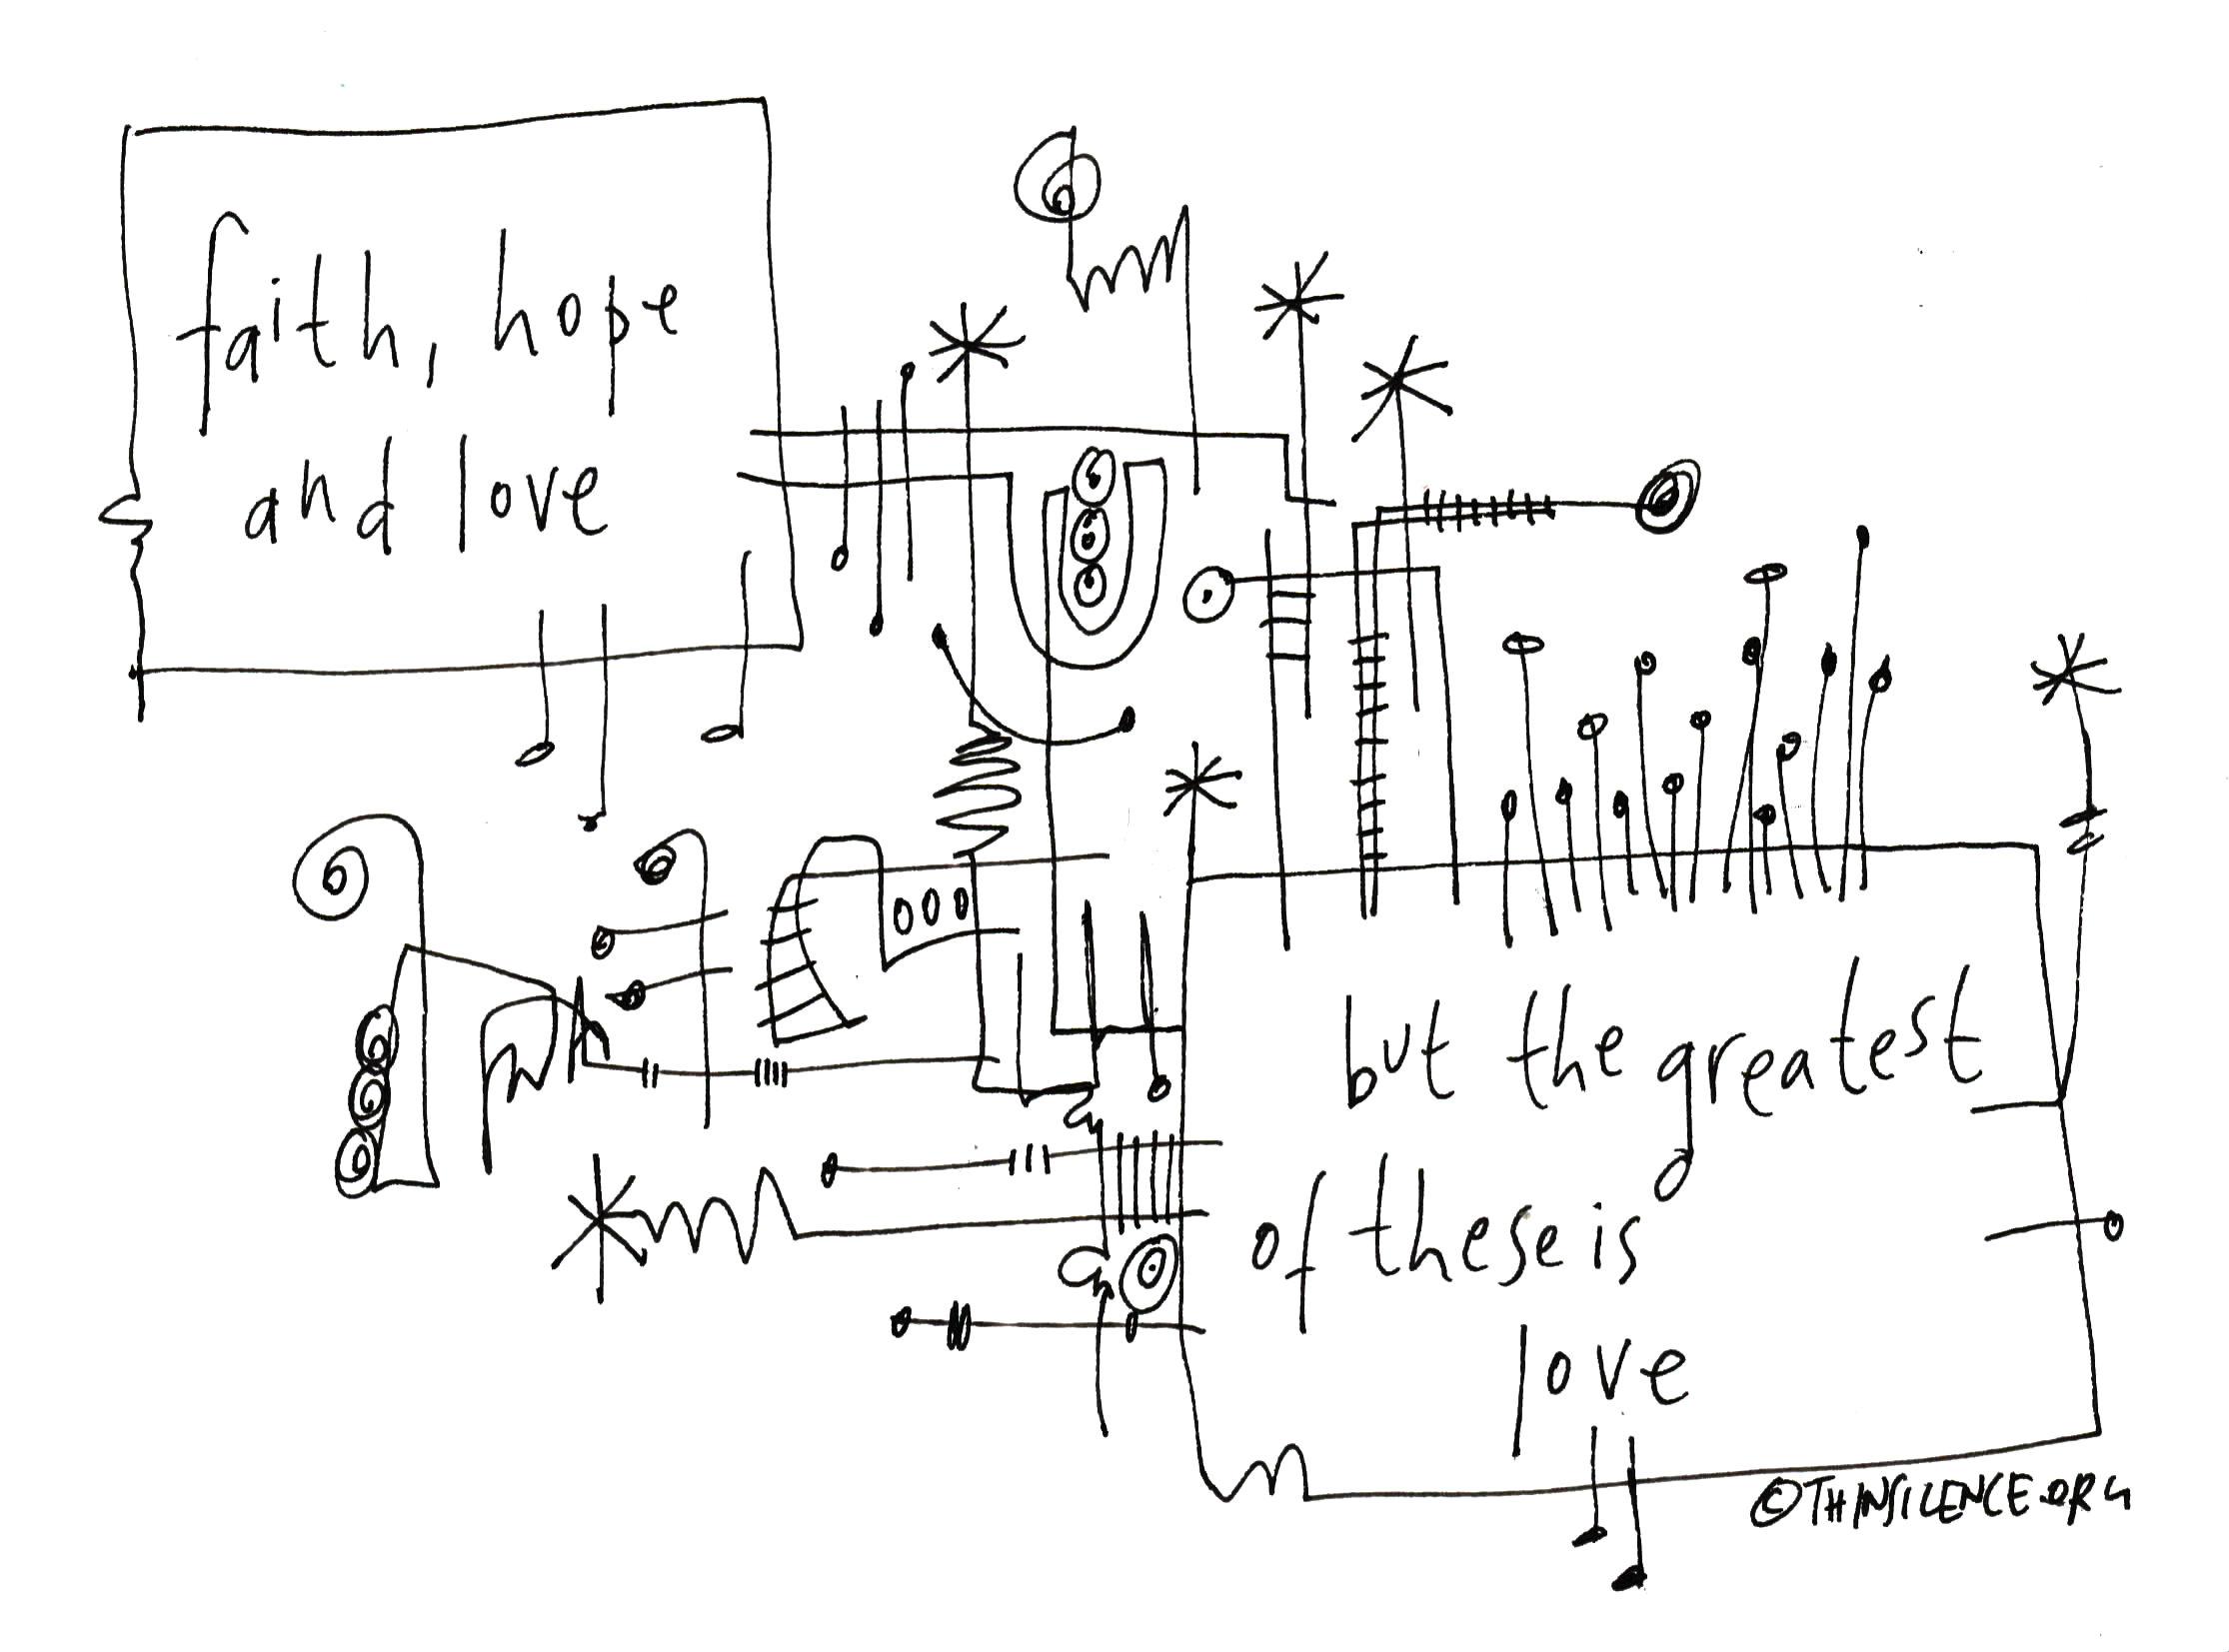 faith, hope
and love
but the greatest
of these is
love
©THINSILENCE.ORG